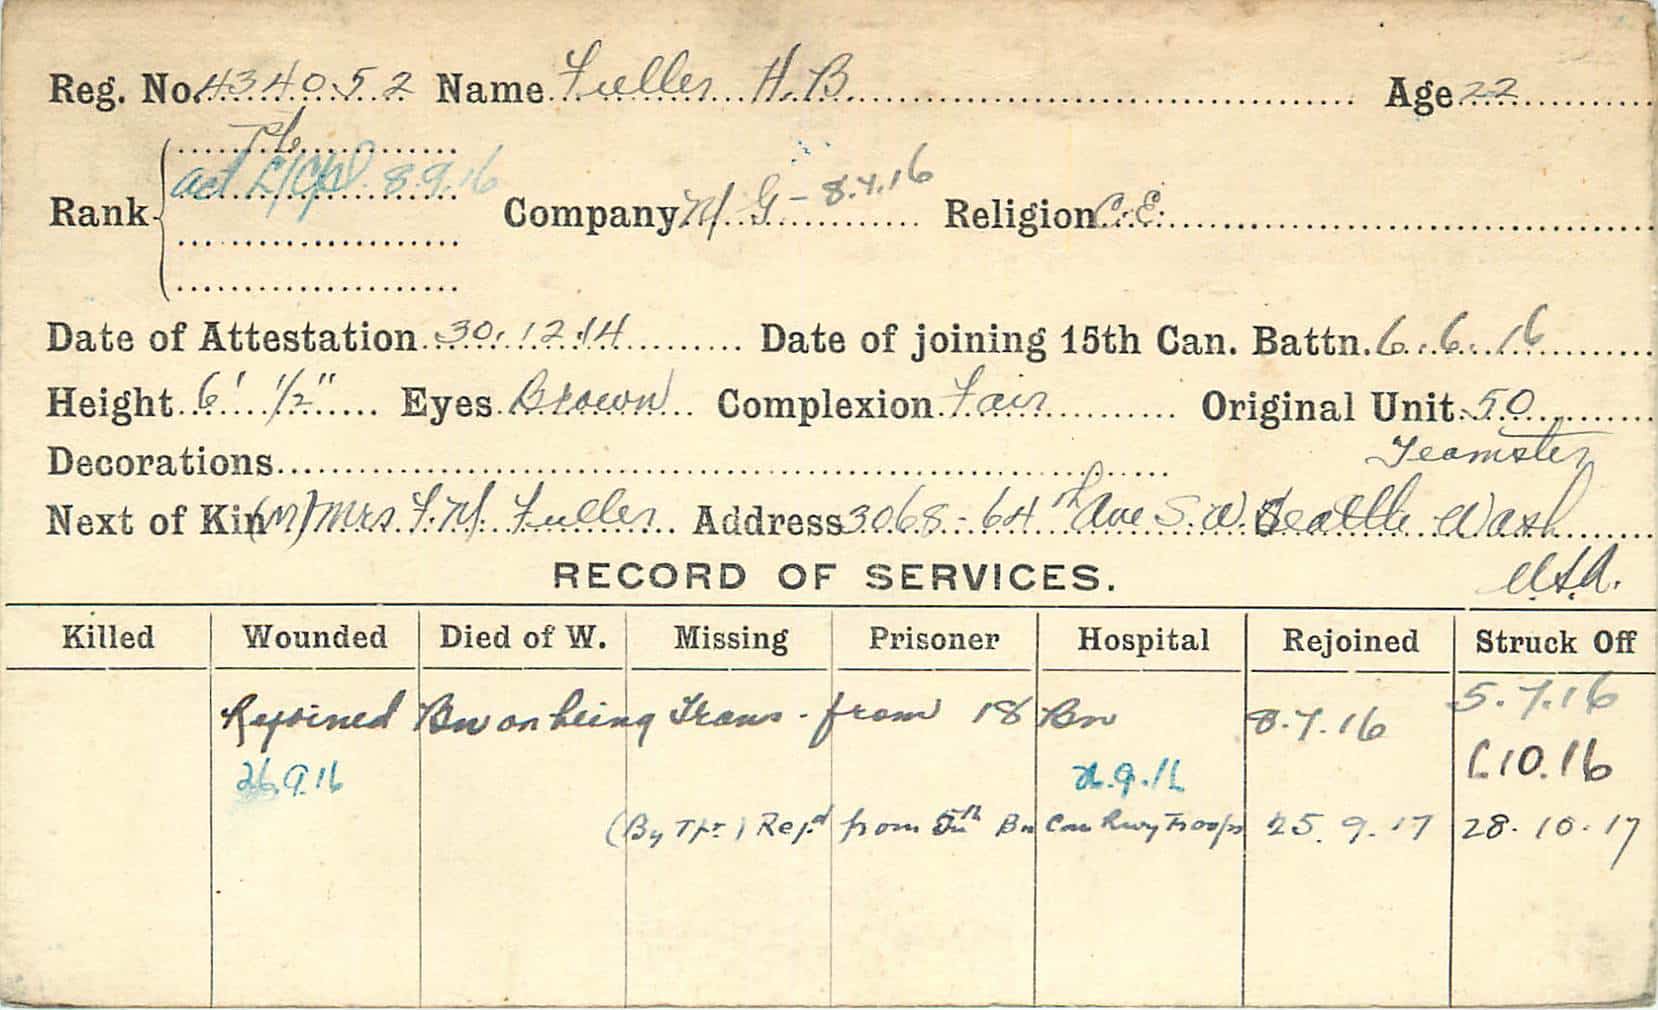 Reg. No. 434052 Name Fuller H.B. Age 22
Pte
act L/Cpl 8.9.16
Rank Company M G - 8.7.16 Religion C.E.
Date of Attestation 30.12.14 Date of joining 15th Can. Battn. 6.6.16
Height 6' 1/2" Eyes Brown Complexion Fair Original Unit 50
Decorations Teamster
Next of Kin (M) Mrs. F.M. Fuller Address 3068-64th Ave S.W. Seattle Wash
U.S.A.
RECORD OF SERVICES.
Killed Wounded Died of W. Missing Prisoner Hospital Rejoined Struck Off
5.7.16
Rejoined Bn on being Trans. from 18 Bn 8.7.16
26.9.16 26.9.16 1.10.16
(By Tfr.) Rej'd from 5th Bn Can Rwy Troops 25.9.17 28.10.17